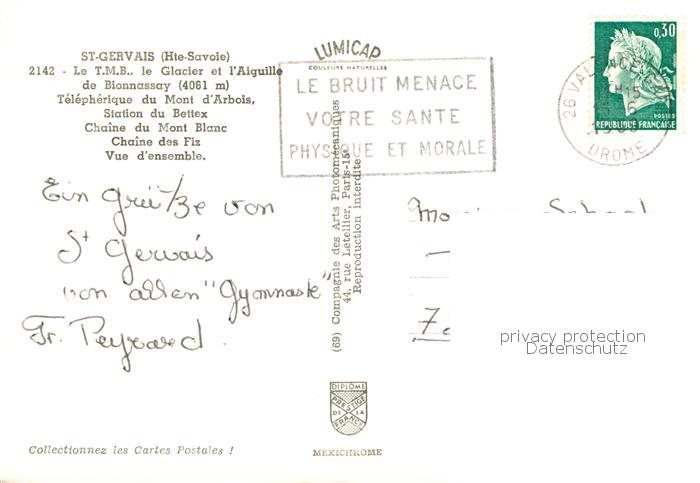 ST-GERVAIS (Hte-Savoie)
2142 - Le T.M.B., le Glacier et l'Aiguille
de Bionnassay (4061 m)
Téléphérique du Mont d'Arbois,
Station du Bettex
Chaîne du Mont Blanc
Chaîne des Fiz
Vue d'ensemble.
LUMICAP
COULEURS NATURELLES
LE BRUIT MENACE
VOTRE SANTE
PHYSIQUE ET MORALE
0,30
POSTES
REPUBLIQUE FRANÇAISE
26 VALENCE
DROME
Ein Grüße von
St Gervais
von allen "Gymnaste"
Fr. Peyrard.
(69) Compagnie des Arts Photomécaniques
44, rue Letellier, Paris-15e
Reproduction interdite
7.
privacy protection
Datenschutz
DIPLOME
PRESTIGE
DE LA
FRANCE
MEXICHROME
Collectionnez les Cartes Postales !